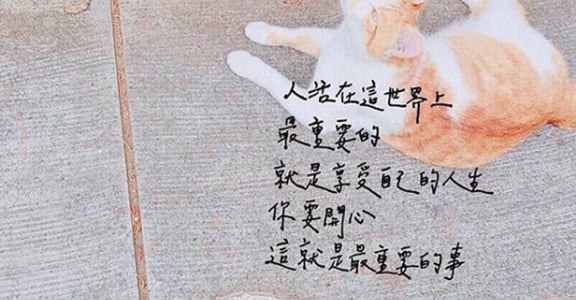 人活在這世界上
最重要的
就是享受自己的人生
你要開心
這就是最重要的事